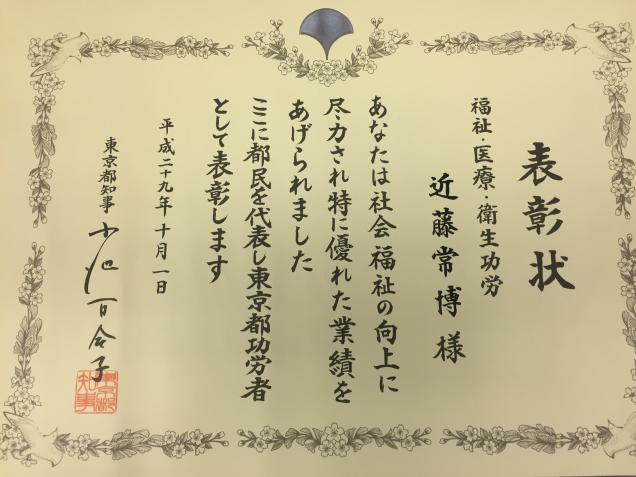 表彰状
福祉・医療・衛生功労
近藤常博様
あなたは社会福祉の向上に
尽力され特に優れた業績を
あげられました
ここに都民を代表し東京都功労者
として表彰します
平成二十九年十月一日
東京都知事 小池百合子